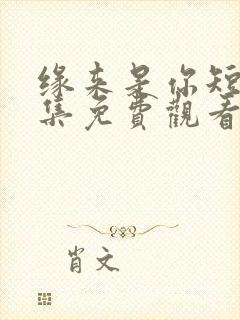 缘来是你短
集免費觀看
肖文